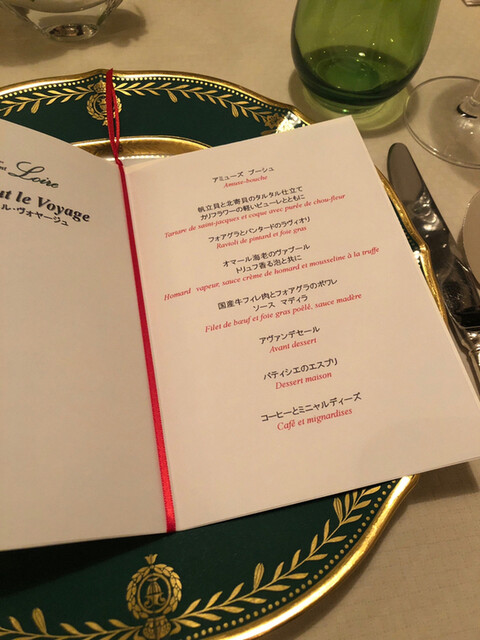 Loire
ut le Voyage
ル・ヴォヤージュ
アミューズ ブーシュ
Amuse-bouche
帆立貝と北寄貝のタルタル仕立て
カリフラワーの軽いピューレとともに
Tartare de saint-jacques et voque avec purée de chou-fleur
フォアグラとパンタードのラヴィオリ
Ravioli de pintard et foie gras
オマール海老のヴァプール
トリュフ香る泡と共に
Homard vapeur, sauce crème de homard et mousseline à la truffe
国産牛フィレ肉とフォアグラのポワレ
ソース マディラ
Filet de bœuf et foie gras poêlé, sauce madère
アヴァンデセール
Avant dessert
パティシエのエスプリ
Dessert maison
コーヒーとミニャルディーズ
Café et mignardises